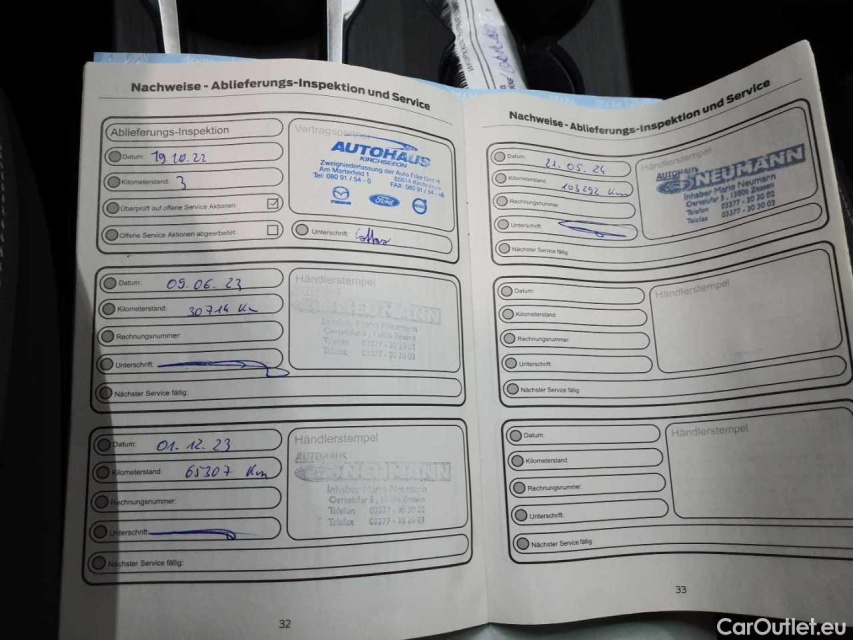 Nachweise - Ablieferungs-Inspektion und Service
Ablieferungs-Inspektion
Datum: 19.10.22
Kilometerstand: 3
Überprüft auf offene Service Aktionen:
Offene Service Aktionen abgearbeitet:
Vertragspartner
AUTOHAUS
KIRCHSEEON
Zweigniederlassung der Auto Eder GmbH
Am Marterfeld 1
85614 Kirchseeon
Tel: 080 91 / 54 - 0
FAX: 080 91 /
mazda
Ford
VOLVO
Unterschrift:
Datum: 09.06.23
Kilometerstand: 30714 Km
Rechnungsnummer:
Unterschrift:
Nächster Service fällig:
Händlerstempel
NEUMANN
Inhaber Mario Neumann
Telefon 03377 - 30 20 02
Telefax 03377 - 30 20 03
Datum: 01.12.23
Kilometerstand: 65307 Km
Rechnungsnummer:
Unterschrift:
Nächster Service fällig:
Händlerstempel
AUTOHAUS
NEUMANN
Inhaber Mario Neumann
Telefon 03377 - 30 20 02
Telefax 03377 - 30 20 03
32
Nachweise - Ablieferungs-Inspektion und Service
Datum: 21.05.24
Kilometerstand: 103292 Km
Rechnungsnummer:
Unterschrift:
Nächster Service fällig:
Händlerstempel
AUTOHAUS
NEUMANN
Inhaber Mario Neumann
Telefon 03377 - 30 20 02
Telefax 03377 - 30 20 03
Datum:
Kilometerstand:
Rechnungsnummer:
Unterschrift:
Nächster Service fällig:
Händlerstempel
Datum:
Kilometerstand:
Rechnungsnummer:
Unterschrift:
Nächster Service fällig:
Händlerstempel
33
CarOutlet.eu